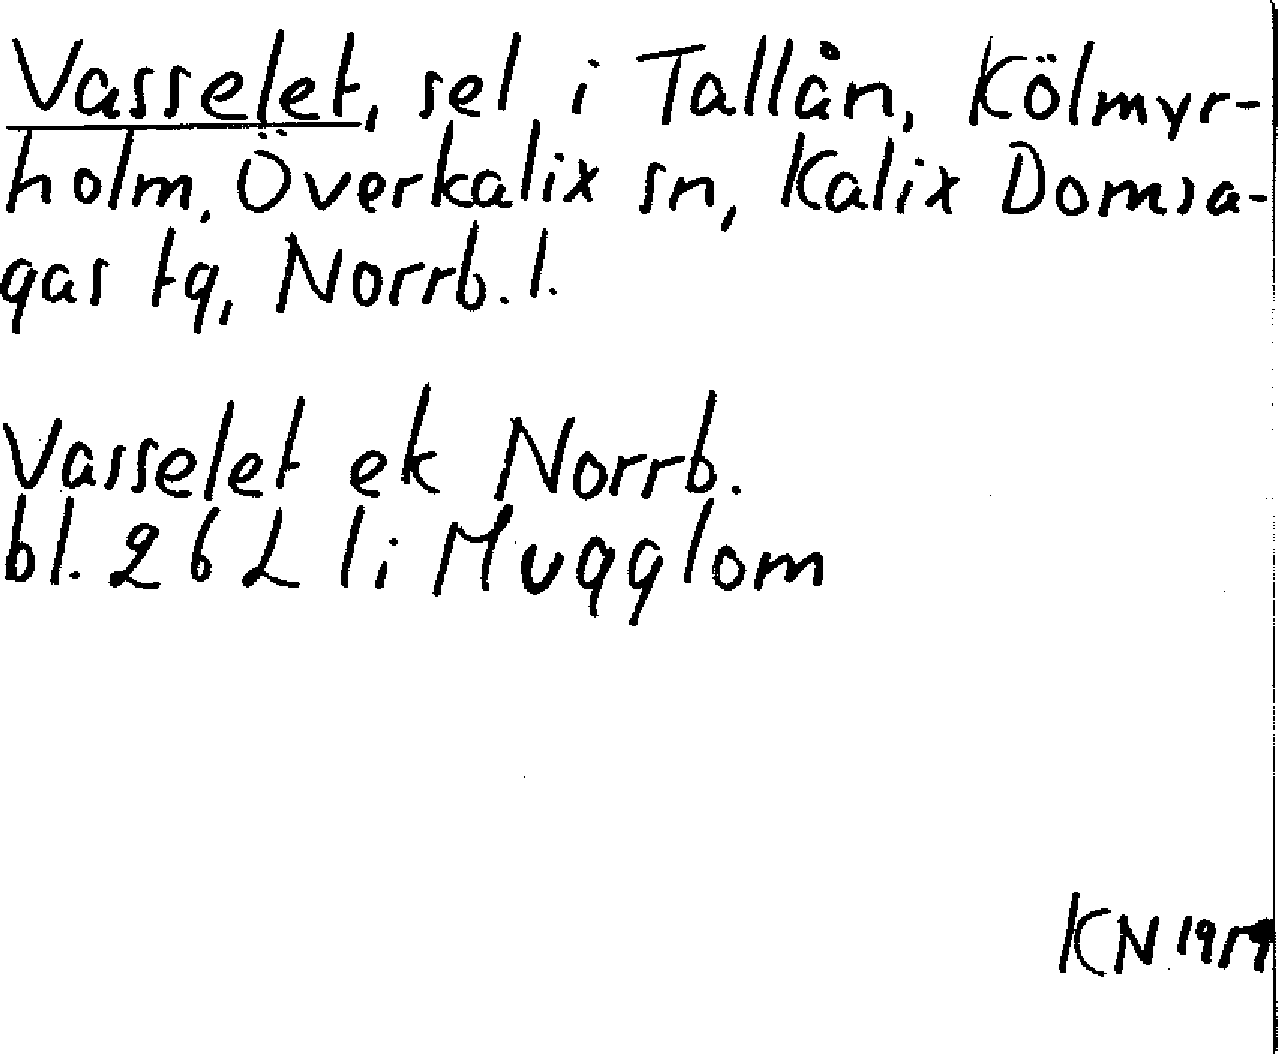 Vasselet, sel i Tallån, Kölmyr-
holm, Överkalix sn, Kalix Domsa-
gas tg, Norrb. l.
Vasselet ek Norrb.
bl. 262 li Mugglom
KN 1959